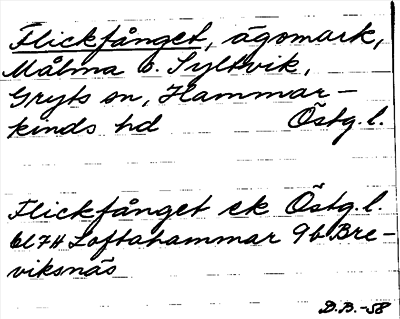 Flickfånget, ägomark,
Målma o. Syltvik,
Gryts sn, Hammar-
kinds hd Östg. l.
Flickfånget ek Östg. l.
bl 74 Loftahammar 9b Bre-
viksnäs
D.B.-58